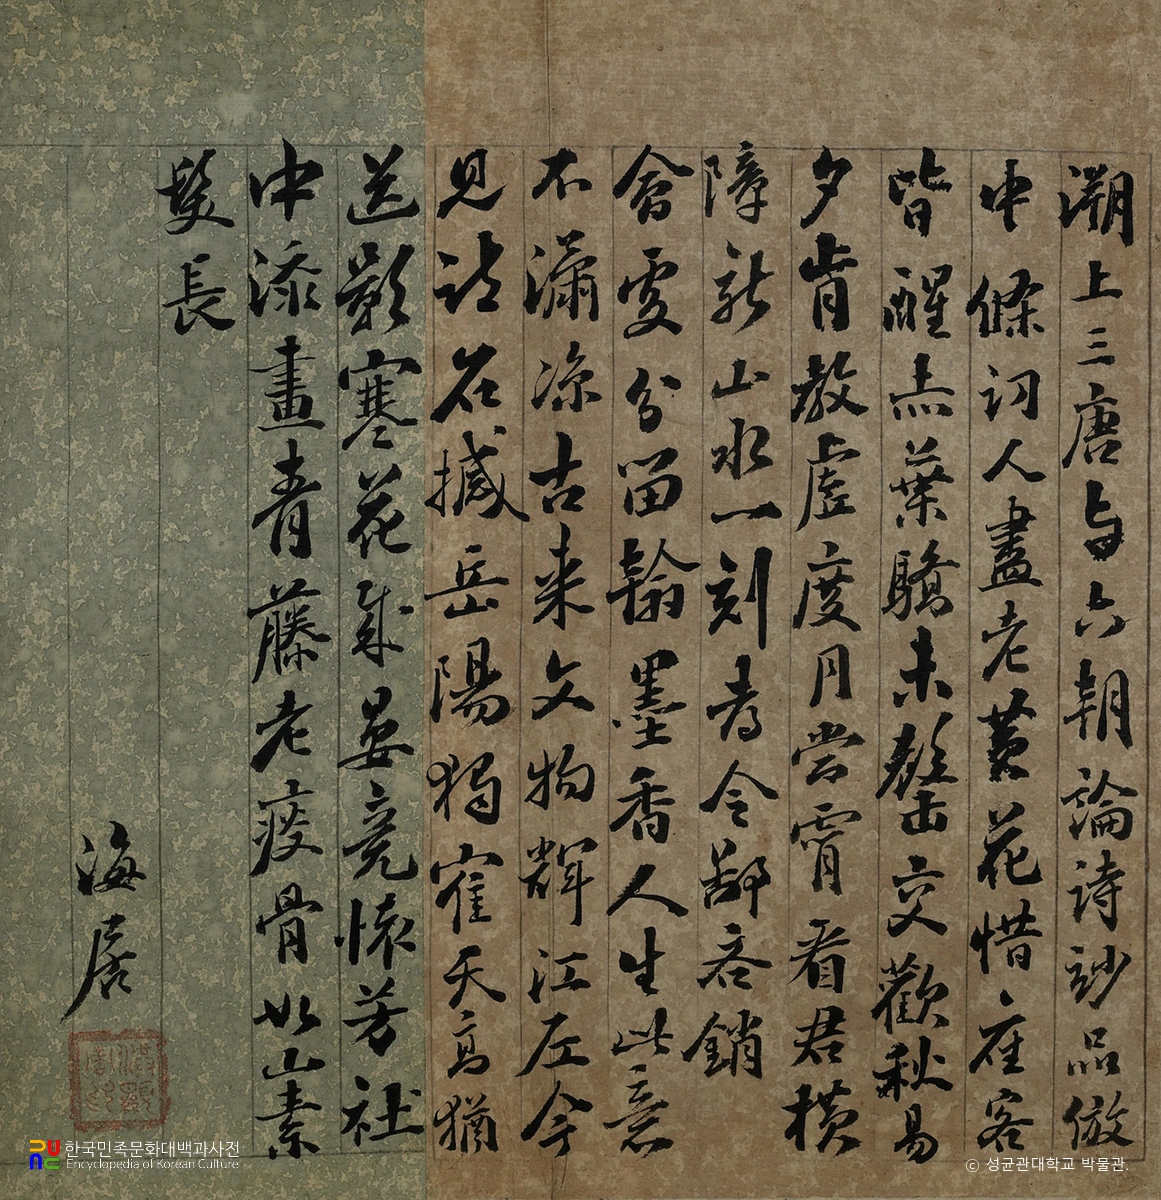 溯上三唐与六朝論詩妙品倣
中條詞人盡老黃花惜座客
皆醒赤葉驕未罄交歡秋易
夕肯教虛度月當霄看君橫
障新山水一刻令鄙吝銷
會處分留翰墨香人生此意
不瀟凉古来文物輝江左今
見詩名撼岳陽獨寉天高猶
送影寒花歲晏竟懷芳社
中添畫青藤老瘦骨如山素
髮長
海居
한국민족문화대백과사전
Encyclopedia of Korean Culture
© 성균관대학교 박물관.